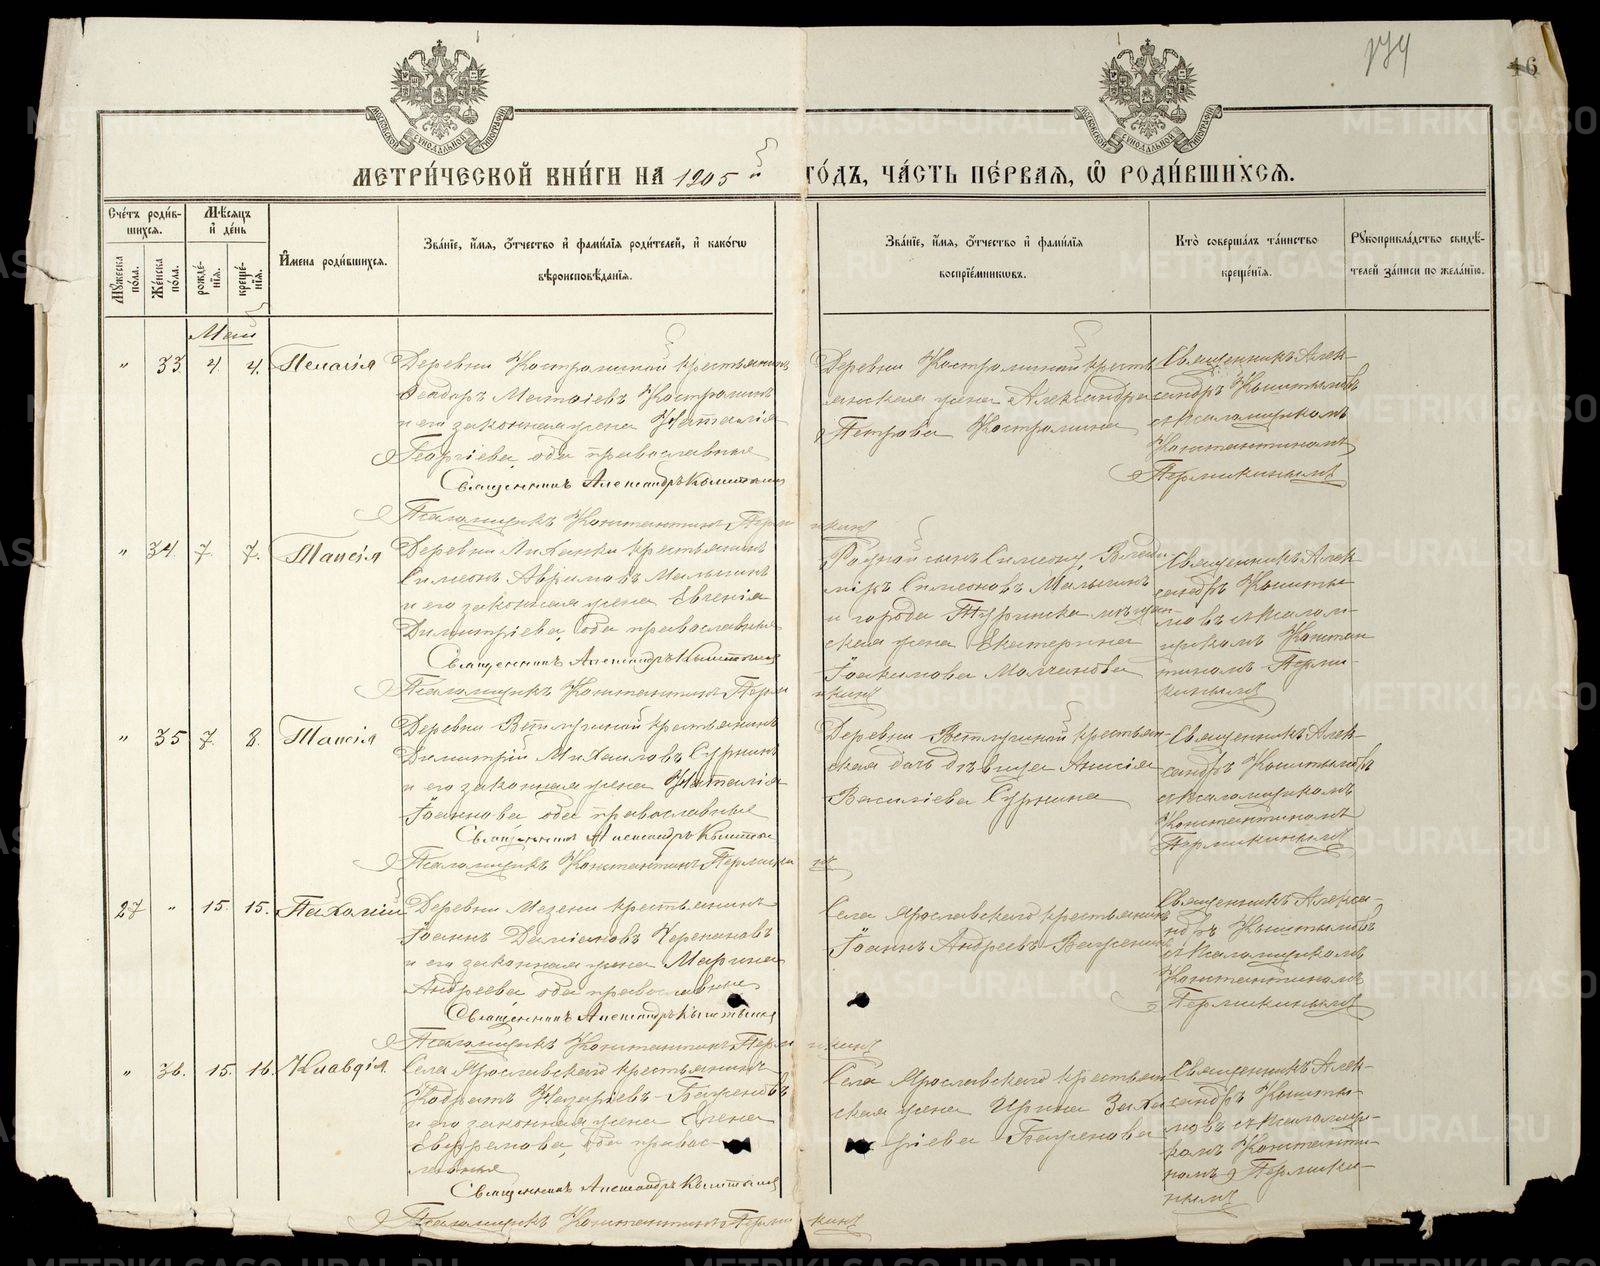 174
46
МЕТРИ́ЧЕСКОЙ КНИ́ГИ НА 1905 й ГО́ДЪ, ЧА́СТЬ ПЕ́РВАЯ, Ѽ РОДИ́ВШИХСЯ.
Сче́тъ роди́вшихся.
Му́жеска по́ла.
Же́нска по́ла.
Мѣ́сяцъ и́ де́нь
рожде́нія.
креще́нія.
И҆мена роди́вшихся.
Зва́ніе, и҆мя, ѻ҆́тчество и҆ фами́лія роди́телей, и҆ како́гѡ
вѣроисповѣ́данія.
Зва́ніе, и҆мя, ѻ҆́тчество и҆ фами́лія
воспрїе́мниковъ.
Кто̀ соверша́лъ та́инство
креще́нія.
Рꙋкоприкла́дство свидѣ́-
телей за́писи по жела́нію.
Май
" 33 4. 4. Пелагія
Деревни Костроминой крестьянинъ
Ѳеодоръ Матѳіевъ Костроминъ
и его законная жена Наталія
Георгіева, оба православные
Священникъ Александръ Кыштымовъ
Псаломщикъ Константинъ Пермикинъ
Деревни Костроминой кресть
янская жена Александра
Петрова Костромина
Священникъ Алек-
сандръ Кыштымовъ
съ псаломщикомъ
Константиномъ
Пермикинымъ
" 34 7. 7. Таисія
Деревни Липинки крестьянинъ
Симеонъ Аврамовъ Малыгинъ
и его законная жена Евгенія
Димитріева, оба православные
Священникъ Александръ Кыштымовъ
Псаломщикъ Константинъ Пермикинъ
Родной сынъ Симеону, Влади
міръ Симеоновъ Малыгинъ
и города Туринска мѣщан-
ская жена Екатерина
Іоакимова Молчанова
Священникъ Алек
сандръ Кышты
мовъ съ псалом-
щикомъ Констан
тиномъ Перми-
кинымъ
" 35 7. 8. Таисія
Деревни Ветлугиной крестьянинъ
Димитрій Михаиловъ Суринъ
и его законная жена Наталія
Іоаннова, оба православные
Священникъ Александръ Кыштымовъ
Псаломщикъ Константинъ Пермикинъ
Деревни Ветлугиной крестьян-
ская дочь дѣвица Анисія
Василіева Сурнина
Священникъ Алек-
сандръ Кыштымовъ
съ псаломщикомъ
Константиномъ
Пермикинымъ
27 " 15. 15. Пахомій
Деревни Мезени крестьянинъ
Іоаннъ Даміановъ Черепановъ
и его законная жена Марина
Андреева, оба православные
Священникъ Александръ Кыштымовъ
Псаломщикъ Константинъ Пермикинъ
Села Ярославскаго крестьянинъ
Іоаннъ Андреевъ Баженинъ
Священникъ Алекса-
ндръ Кыштымовъ
съ псаломщикомъ
Константиномъ
Пермикинымъ
" 36. 15. 16. Клавдія
Села Ярославскаго крестьянинъ
Кодратъ Назаріевъ Баженовъ
и его законная жена Елена
Евфремова, оба правос-
лавные
Священникъ Александръ Кыштымовъ
Псаломщикъ Константинъ Пермикинъ
Села Ярославскаго крестьян
ская жена Ирина Заха
ріева Баженова
Священникъ Алек-
сандръ Кышты-
мовъ съ псаломщи-
комъ Константи-
номъ Пермики-
нымъ